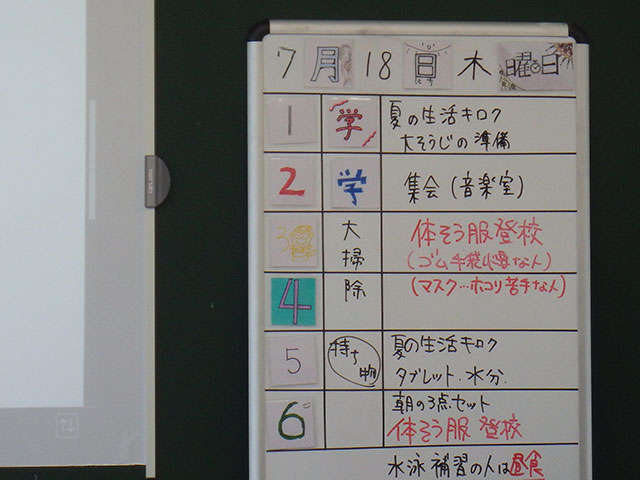 7月18日木曜日
1 学 夏の生活キロク
大そうじの準備
2 学 集会(音楽室)
3 大掃除 体そう服登校
(ゴム手袋必要な人)
4 (マスク…ホコリ苦手な人)
5 持ち物 夏の生活キロク
タブレット.水分.
6 朝の3点セット
体そう服登校
水泳補習の人は昼食